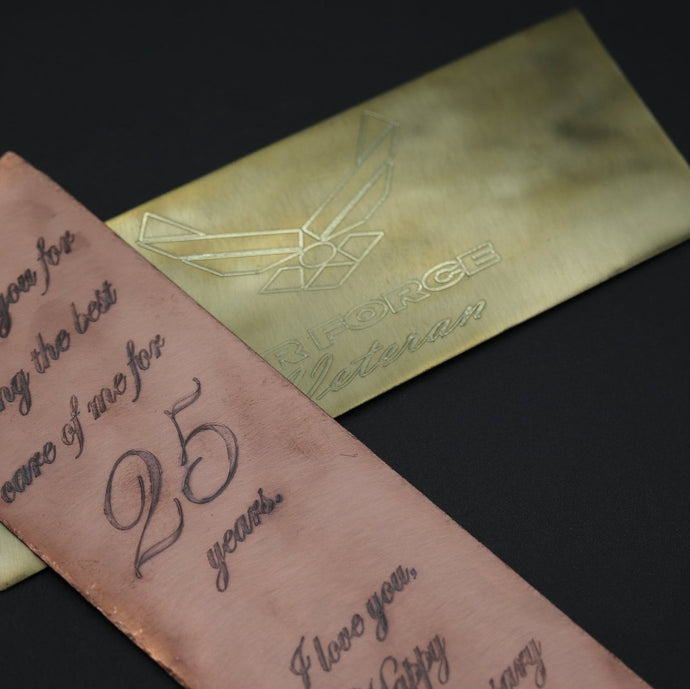 you for
the best
care of me for
25
years.
I love you,
Happy
FORCE
Veteran